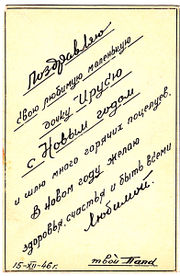 Поздравляю
Свою любимую маленькую
дочку Ирусю
с Новым годом
и шлю много горячих поцелуев.
В новом году желаю
здоровья, счастья и быть всеми
любимой.
15-XII-46 г.
твой Папа